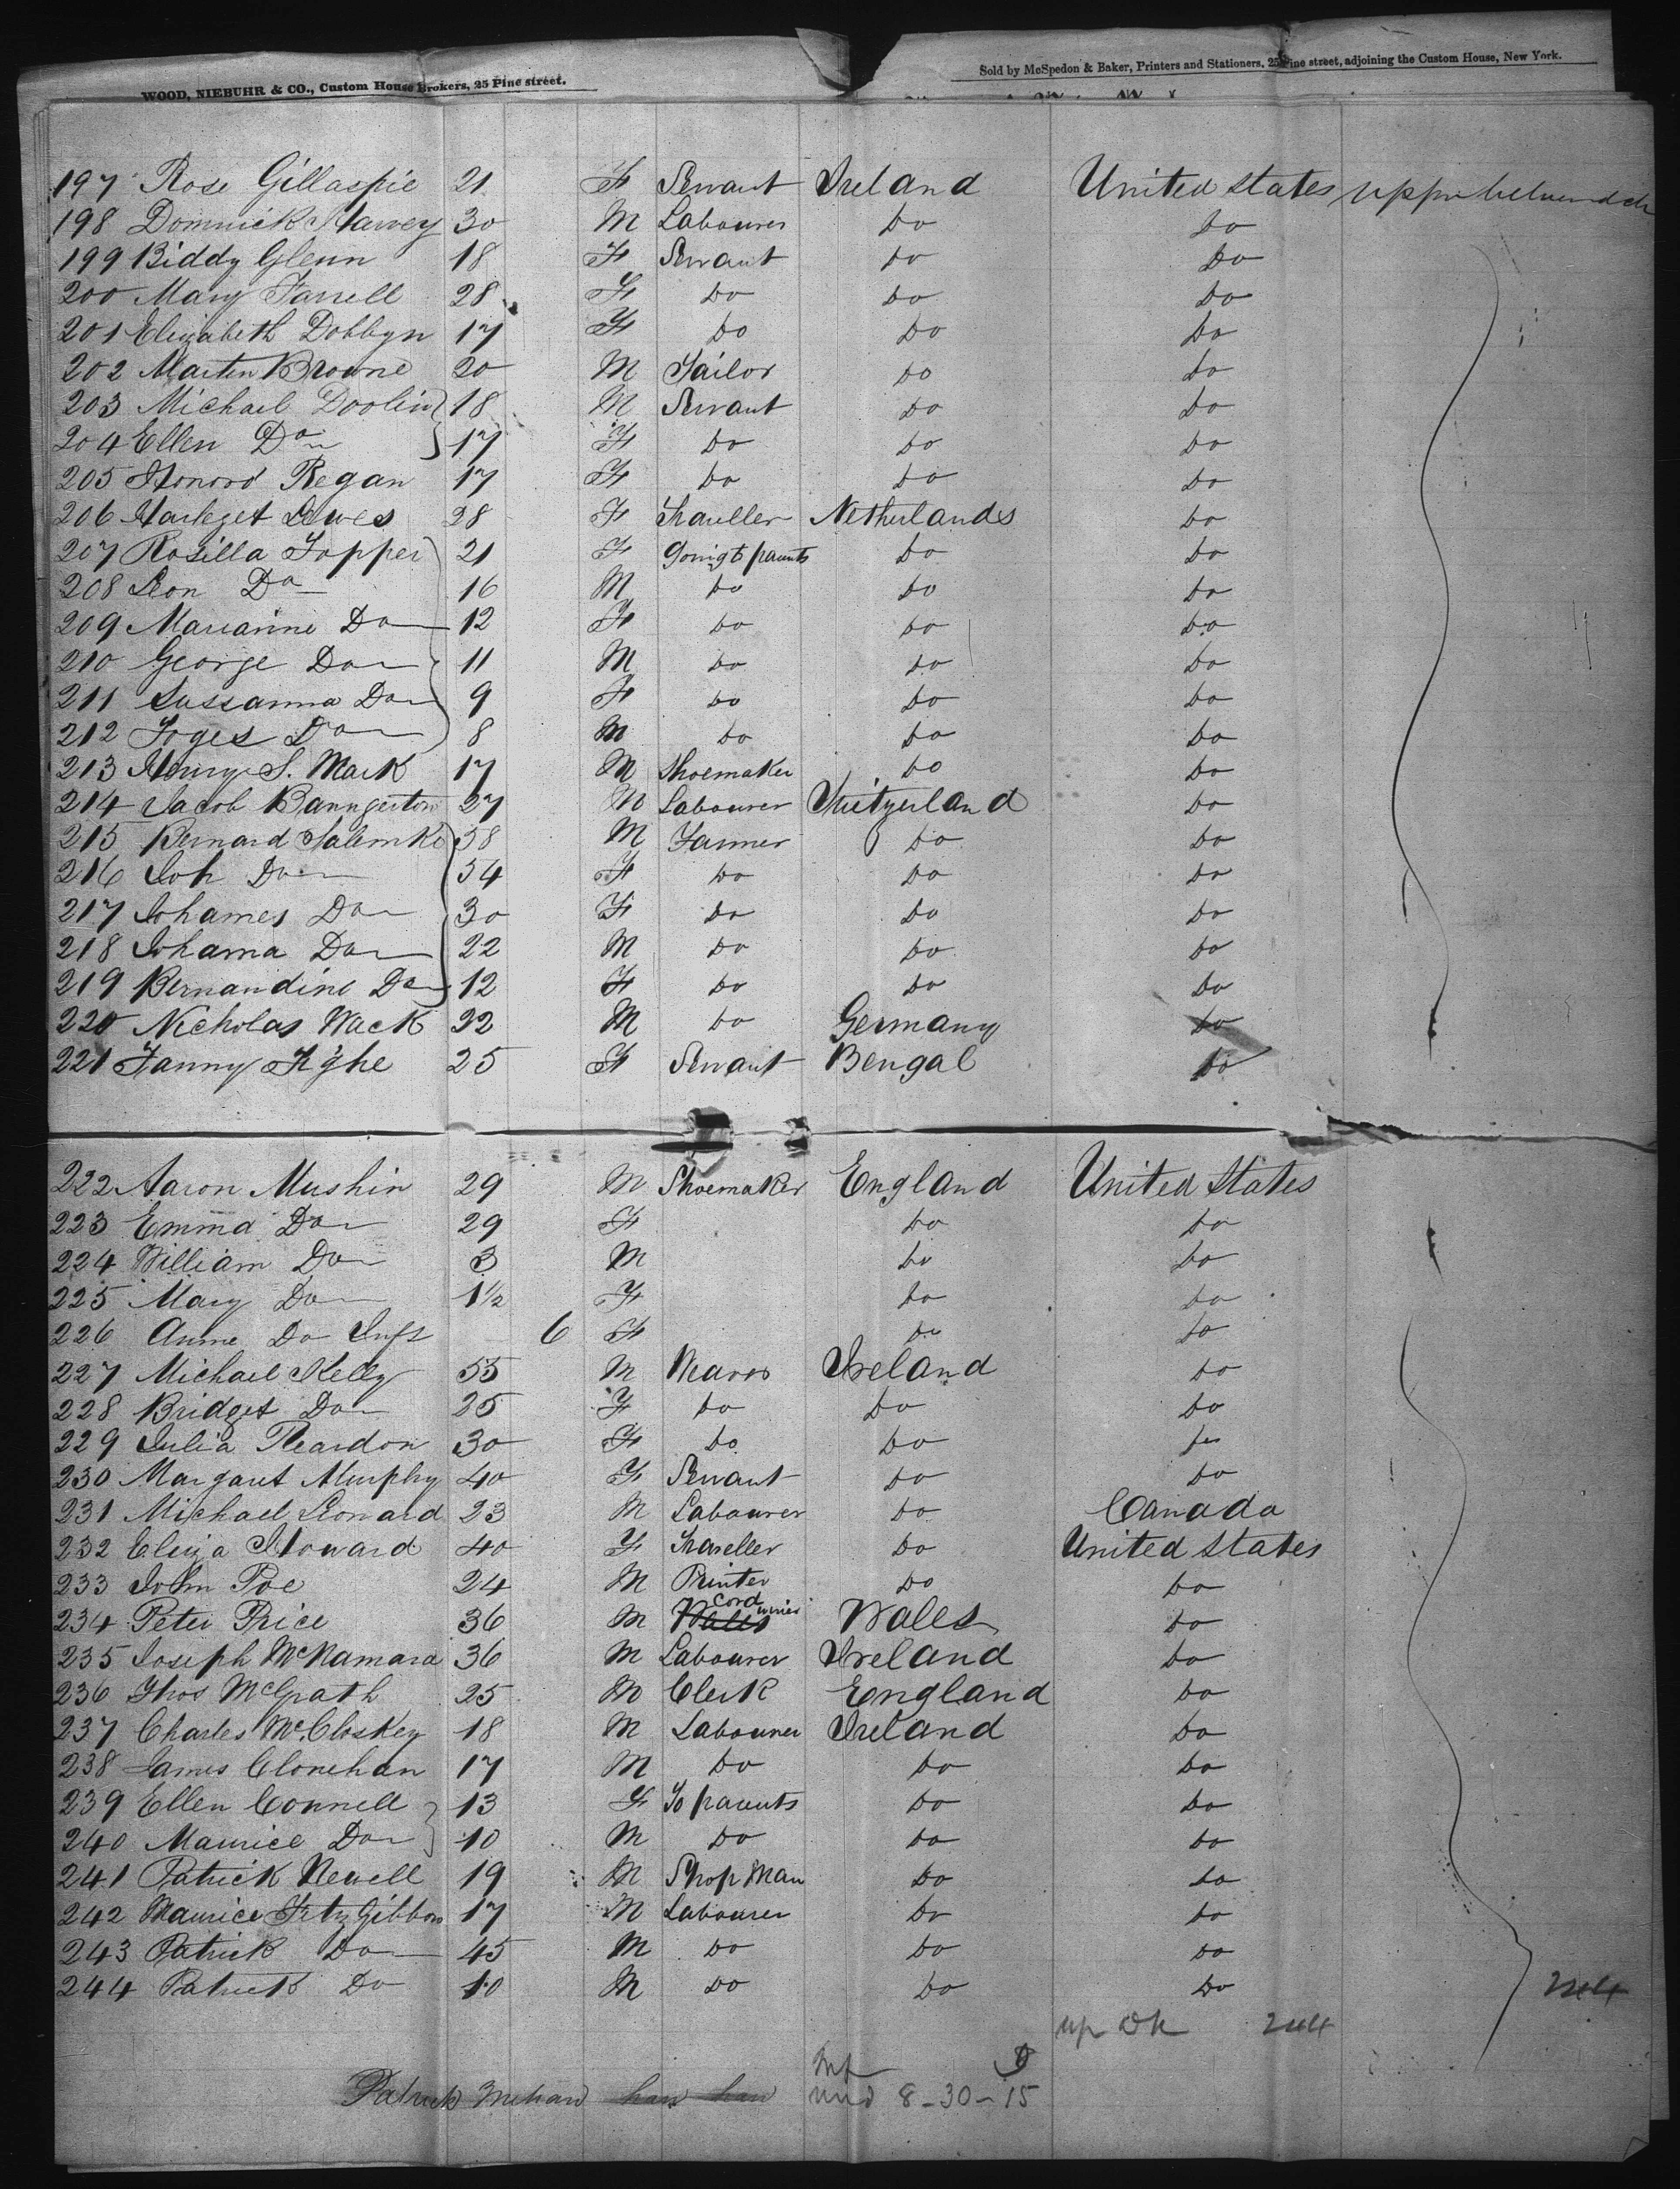 WOOD, NIEBUHR & CO., Custom House Brokers, 25 Pine street.
Sold by McSpedon & Baker, Printers and Stationers, 25 Pine street, adjoining the Custom House, New York.
197 Rose Gillaspie 21 F Servant Ireland United States
198 Domnick Harvey 30 M Labourer Do Do
199 Biddy Glenn 18 F Servant Do Do
200 Mary Farrell 28 F Do Do Do
201 Elizabeth Dobbyn 17 F Do Do Do
202 Martin Browne 20 M Tailor Do Do
203 Michael Doolin 18 M Servant Do Do
204 Ellen Do 17 F Do Do Do
205 Honora Regan 17 F Do Do Do
206 Lewes 28 F Traveller Netherlands Do
207 Rosilla Topper 21 F Going to parents Do Do
208 Leon Do 16 M Do Do Do
209 Marianne Do 12 F Do Do Do
210 George Do 11 M Do Do Do
211 Sussanna Do 9 F Do Do Do
212 Do 8 M Do Do Do
213 Henry S. Mark 17 M Shoemaker Do Do
214 Jacob Banngerton 27 M Labourer Switzerland Do
215 Bernard Salemke 58 M Farmer Do Do
216 Joh Do 54 F Do Do Do
217 Johames Do 30 F Do Do Do
218 Johama Do 22 M Do Do Do
219 Bernandine Do 12 F Do Do Do
220 Nicholas Wack 22 M Do Germany Do
221 Fanny Tighe 25 F Servant Bengal Do
222 Aaron Mushin 29 M Shoemaker England United States
223 Emma Do 29 F Do Do
224 William Do 3 M Do Do
225 Mary Do 1½ F Do Do
226 Anne Do Inft 6 F Do Do
227 Michael Kelly 55 M Ireland Do
228 Bridget Do 25 F Do Do Do
229 Julia Reardon 30 F Do Do Do
230 Margaret Murphy 40 F Servant Do Do
231 Michael Leonard 23 M Labourer Do Canada
232 Eliza Howard 40 F Traveller Do United States
233 John Poe 24 M Printer Do Do
234 Peter Price 36 M Wales Cordwinier Wales Do
235 Joseph McNamara 36 M Labourer Ireland Do
236 Thos McGrath 25 M Clerk England Do
237 Charles McCloskey 18 M Labourer Ireland Do
238 James Clonehan 17 M Do Do Do
239 Ellen Connell 13 F To parents Do Do
240 Maurice Do 10 M Do Do Do
241 Patrick Newell 19 M Shop Man Do Do
242 Maurice FitzGibbon 17 M Labourer Do Do
243 Patrick Do 45 M Do Do Do
244 Patrick Do 10 M Do Do Do
244
up Dk 244
Patrick Mehan
8-30-15